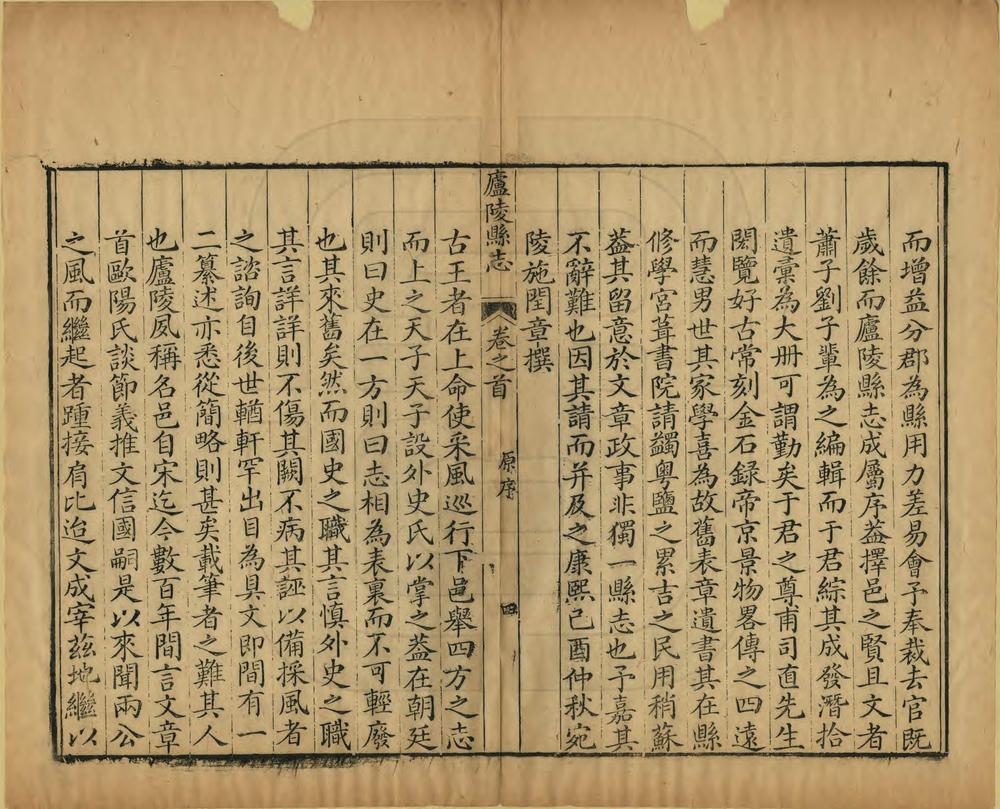 而增益分郡為縣用力差易會予奉裁去官既
歲餘而廬陵縣志成屬序葢擇邑之賢且文者
蕭子劉子輩為之編輯而于君綜其成發潛拾
遺彙為大册可謂勤矣于君之尊甫司直先生
閎覽好古常刻金石録帝京景物畧傳之四遠
而慧男世其家學喜為故舊表章遺書其在縣
修學宮葺書院請蠲粵鹽之累吉之民用稍蘇
葢其留意於文章政事非獨一縣志也予嘉其
不辭難也因其請而并及之康熙己酉仲秋宛
陵施閏章撰
廬陵縣志 卷之首 原序 四
古王者在上命使采風巡行下邑舉四方之志
而上之天子天子設外史氏以掌之葢在朝廷
則曰史在一方則曰志相為表裏而不可輕廢
也其來舊矣然而國史之職其言慎外史之職
其言詳詳則不傷其闕不病其誣以備採風者
之諮詢自後世輶軒罕出目為具文即間有一
二纂述亦悉從簡略則甚矣載筆者之難其人
也廬陵夙稱名邑自宋迄今數百年間言文章
首歐陽氏談節義推文信國嗣是以來聞兩公
之風而繼起者踵接肩比迨文成宰茲地繼以